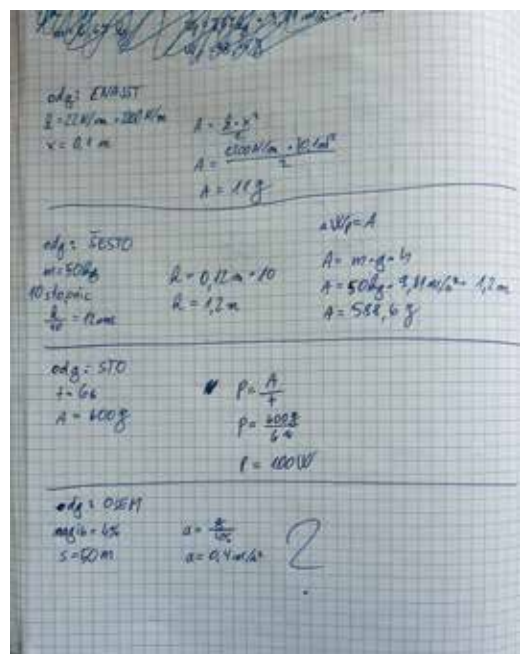 odg: ENAJST
k = 22 N/cm = 2200 N/m
x = 0,1 m
A = k · x² / 2
A = 2200 N/m · (0,1m)² / 2
A = 11 J
odg: ŠESTO
m = 50 kg
10 stopnic
h/10 = 12 cm
h = 0,12 m · 10
h = 1,2 m
ΔWp = A
A = m · g · h
A = 50 kg · 9,81 m/s² · 1,2 m
A = 588,6 J
odg: STO
t = 6s
A = 600 J
P = A / t
P = 600 J / 6 s
P = 100 W
odg: OSEM
nagib = 4%
s = 60 m
a = 0,4 m/s²
?